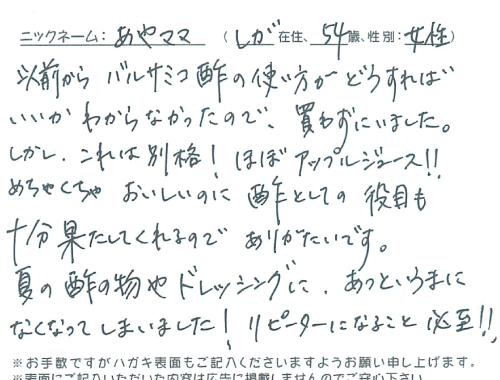 ニックネーム：あやママ （しが在住、54歳、性別：女性）
以前から バルサミコ酢の使い方がどうすれば
いいかわからなかったので、買わずにいました。
しかし、これは別格！ほぼアップルジュース!!
めちゃくちゃ おいしいのに 酢としての 役目も
十分果たしてくれるので ありがたいです。
夏の酢の物や ドレッシングに、あっというまに
なくなってしまいました！リピーターになること 必至!!
※お手数ですがハガキ表面もご記入くださいますようお願い申し上げます。
※表面にご記入いただいた内容は広告に掲載しませんのでご安心下さい